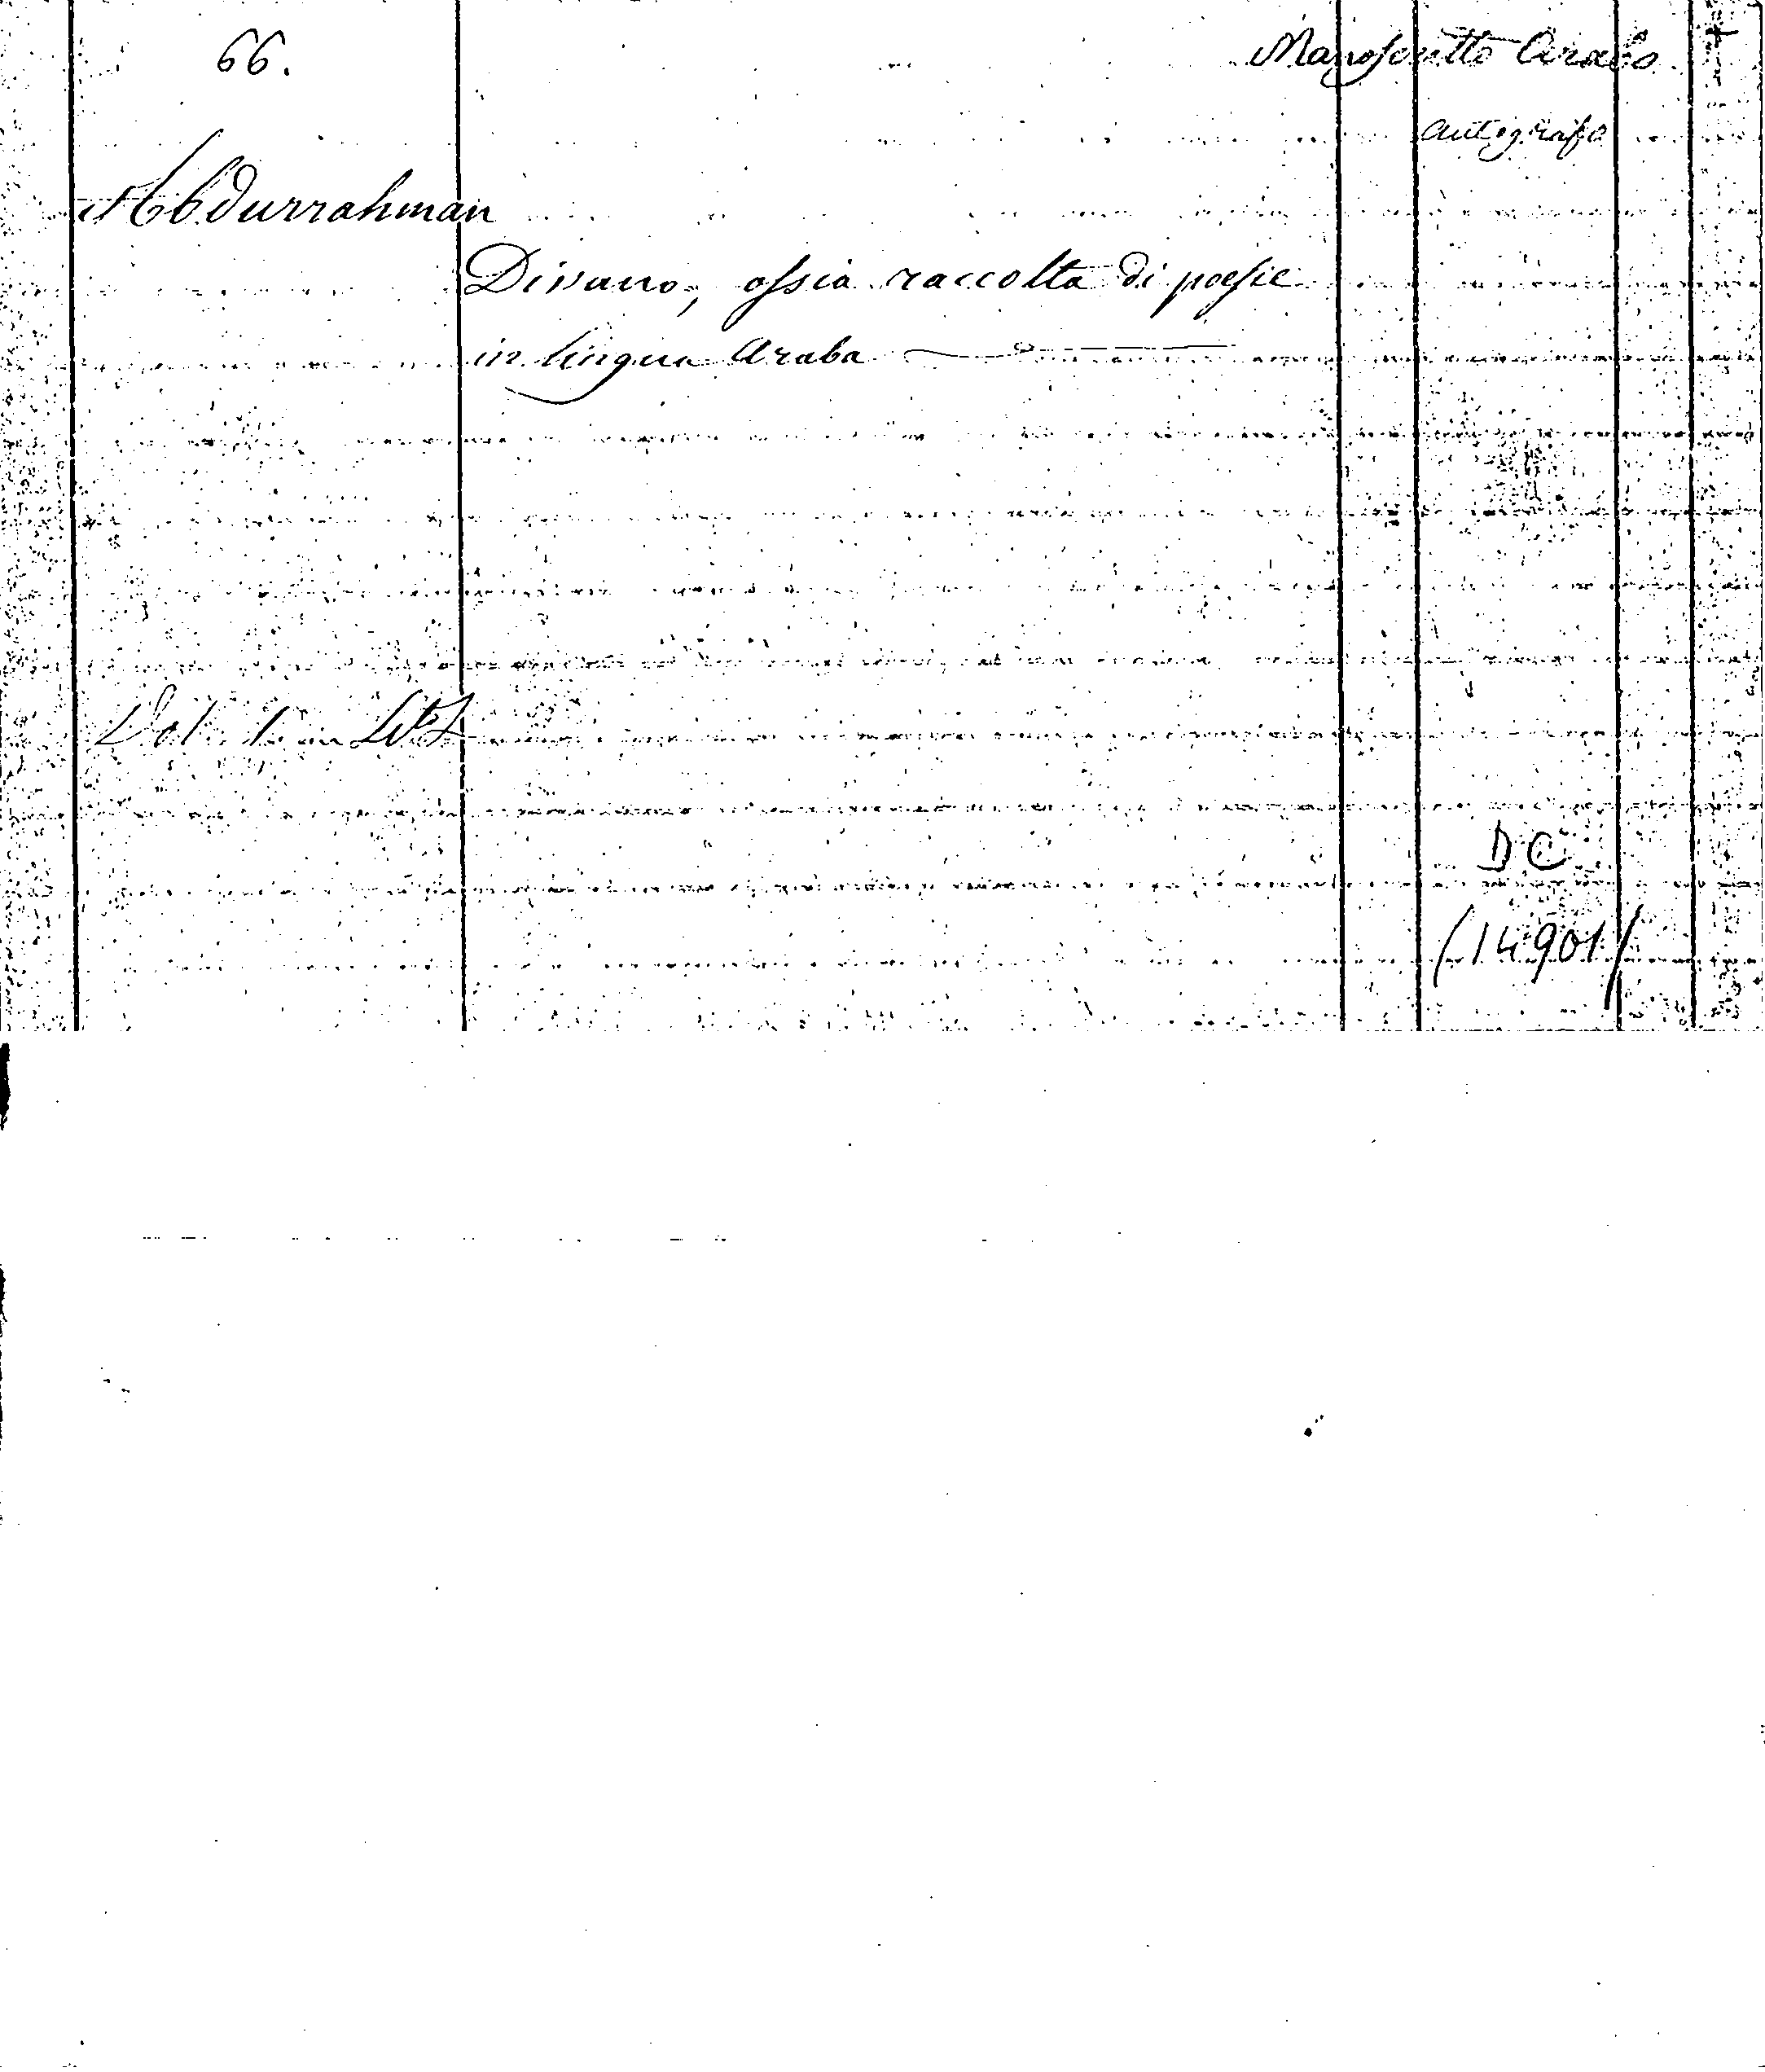 66.
Manoscritto Arabo
autografo
Abdurrahman
Divano, ossia raccolta di poesie
in lingua Araba
Vol. 1. in
DC
(14901)